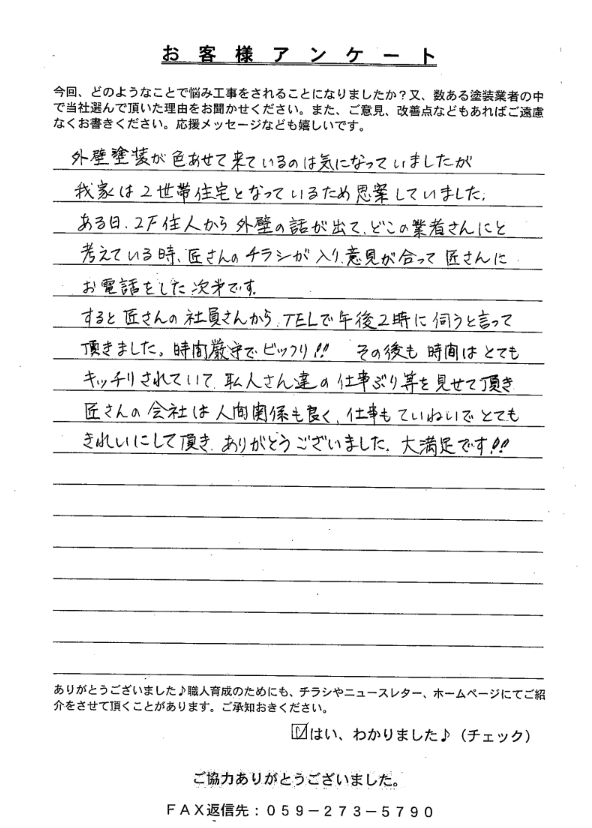 お客様アンケート
今回、どのようなことで悩み工事をされることになりましたか？又、数ある塗装業者の中
で当社選んで頂いた理由をお聞かせください。また、ご意見、改善点などもあればご遠慮
なくお書きください。応援メッセージなども嬉しいです。
外壁塗装が色あせて来ているのは気になっていましたが
我家は2世帯住宅となっているため思案していました。
ある日、2F住人から外壁の話が出て、どこの業者さんにと
考えている時、匠さんのチラシが入り、意見が合って匠さんに
お電話をした次第です。
すると匠さんの社員さんから、TELで午後2時に伺うと言って
頂きました。時間厳守でビックリ!! その後も時間はとても
キッチリされていて、職人さん達の仕事ぶり等を見せて頂き
匠さんの会社は人間関係も良く、仕事もていねいでとても
きれいにして頂き、ありがとうございました。大満足です!!
ありがとうございました♪職人育成のためにも、チラシやニュースレター、ホームページにてご紹
介をさせて頂くことがあります。ご承知おきください。
☑はい、わかりました♪（チェック）
ご協力ありがとうございました。
FAX返信先：059－273－5790